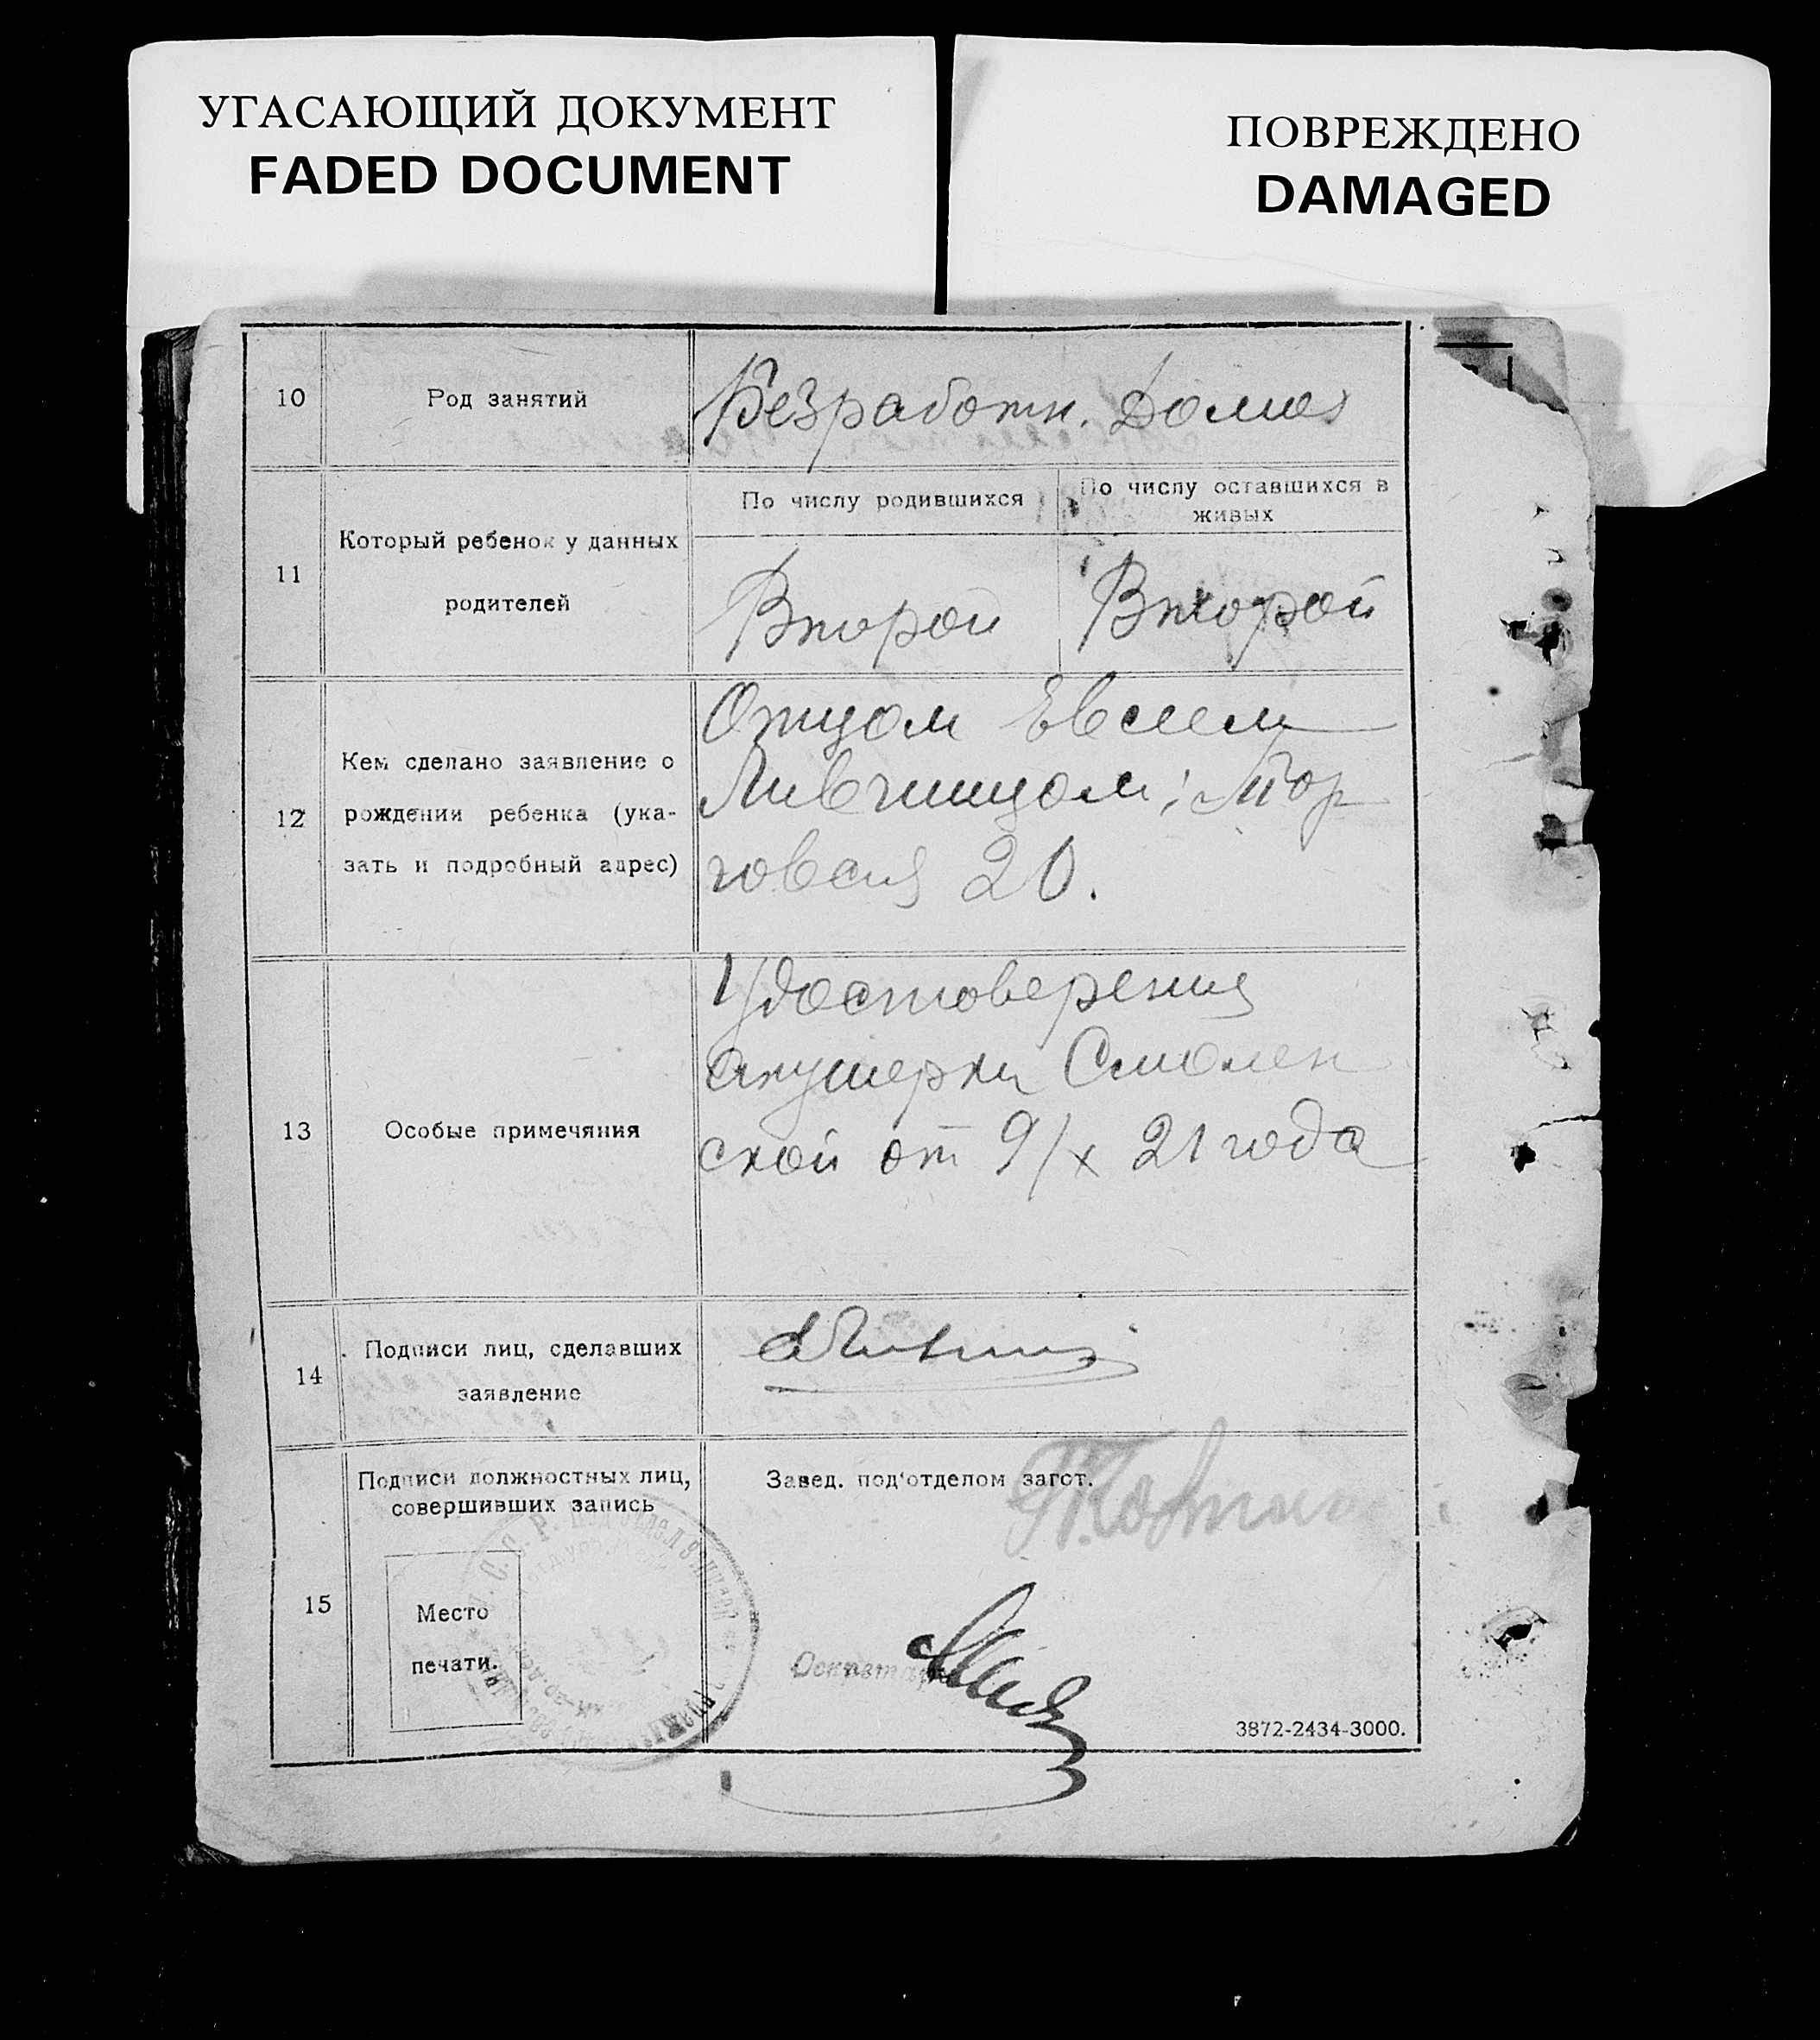 УГАСАЮЩИЙ ДОКУМЕНТ
FADED DOCUMENT
ПОВРЕЖДЕНО
DAMAGED
10
Род занятий
Безработн. Домаш
11
Который ребенок у данных
родителей
По числу родившихся
По числу оставшихся в
живых
Второй
Второй
12
Кем сделано заявление о
рождении ребенка (ука-
зать и подробный адрес)
Отцом Евсеем
Лившицом; Тор
говая 20.
13
Особые примечания
Удостоверения
акушерки Смолен
ской от 9/х 21 года
14
Подписи лиц, сделавших
заявление
15
Подписи должностных лиц,
совершивших запись
Место
печати.
Завед. под'отделом загот.
Секретарь
3872-2434-3000.